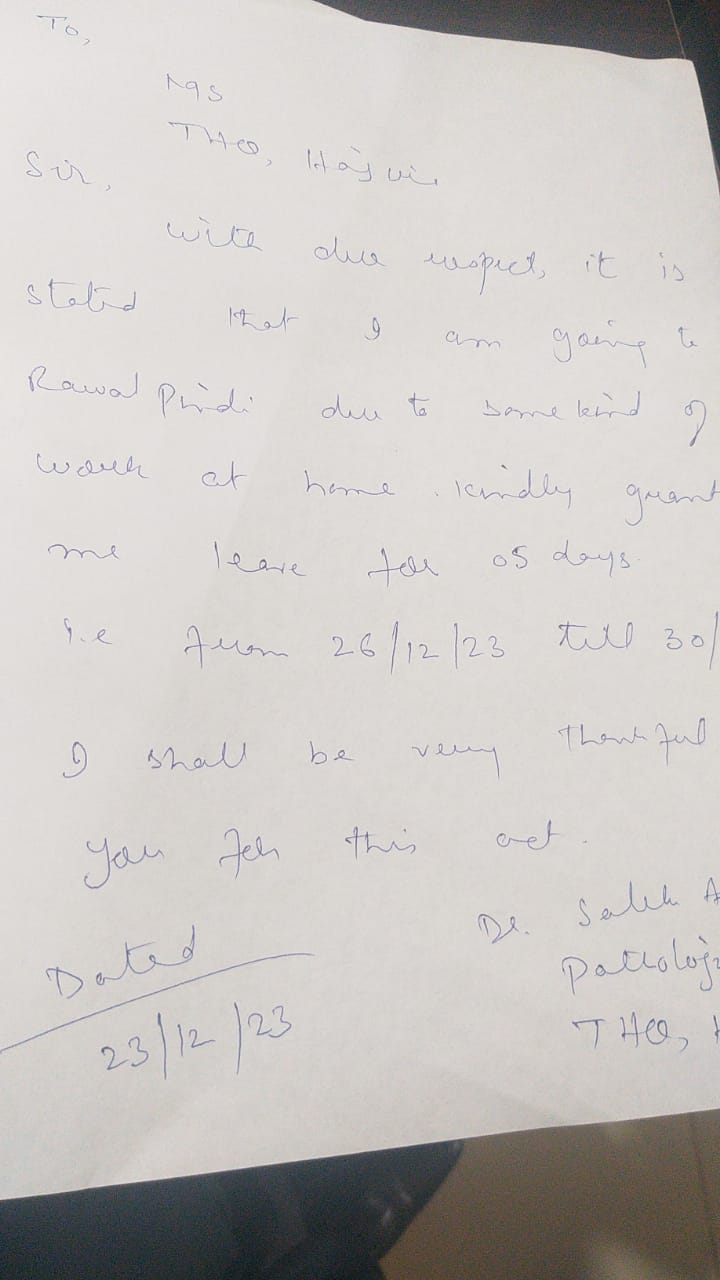 To,
MS
THQ, Hazro.
Sir,
with due respect, it is
stated that I am going to
Rawal Pindi due to some kind of
work at home. kindly grant
me leave for 05 days.
i.e from 26/12/23 till 30/
I shall be very thankful
you for this act.
Dr. Saleh A
Pathologi
THQ, H
Dated
23/12/23